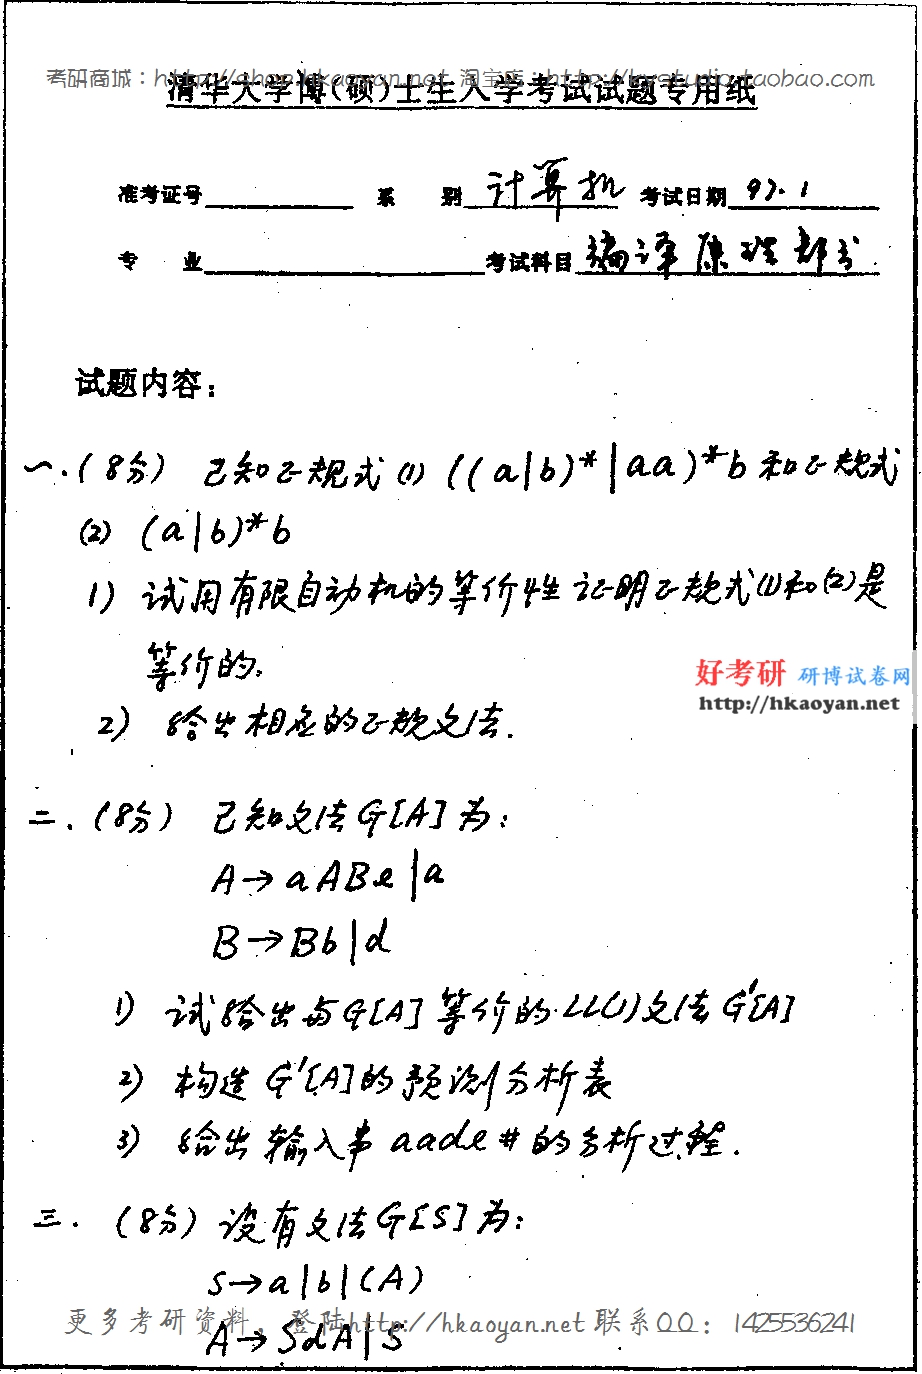 考研商城：http://shop.hkaoyan.net 淘宝店：http://kystudio.taobao.com
清华大学博(硕)士生入学考试试题专用纸
准考证号 系 别 计算机 考试日期 97.1
专 业 考试科目 编译原理部分
试题内容：
一.(8分) 已知正规式(1) ((a|b)*|aa)*b 和正规式
(2) (a|b)*b
1) 试用有限自动机的等价性证明正规式(1)和(2)是
等价的。
好考研 研博试卷网
http://hkaoyan.net
2) 给出相应的正规文法.
二.(8分) 已知文法G[A]为:
A→aABe|a
B→Bb|d
1) 试给出与G[A]等价的LL(1)文法G'[A]
2) 构造G'[A]的预测分析表
3) 给出输入串aade#的分析过程.
三.(8分) 设有文法G[S]为:
S→a|b|(A)
更多考研资料，登陆http://hkaoyan.net 联系QQ：1425536241
A→SdA|S